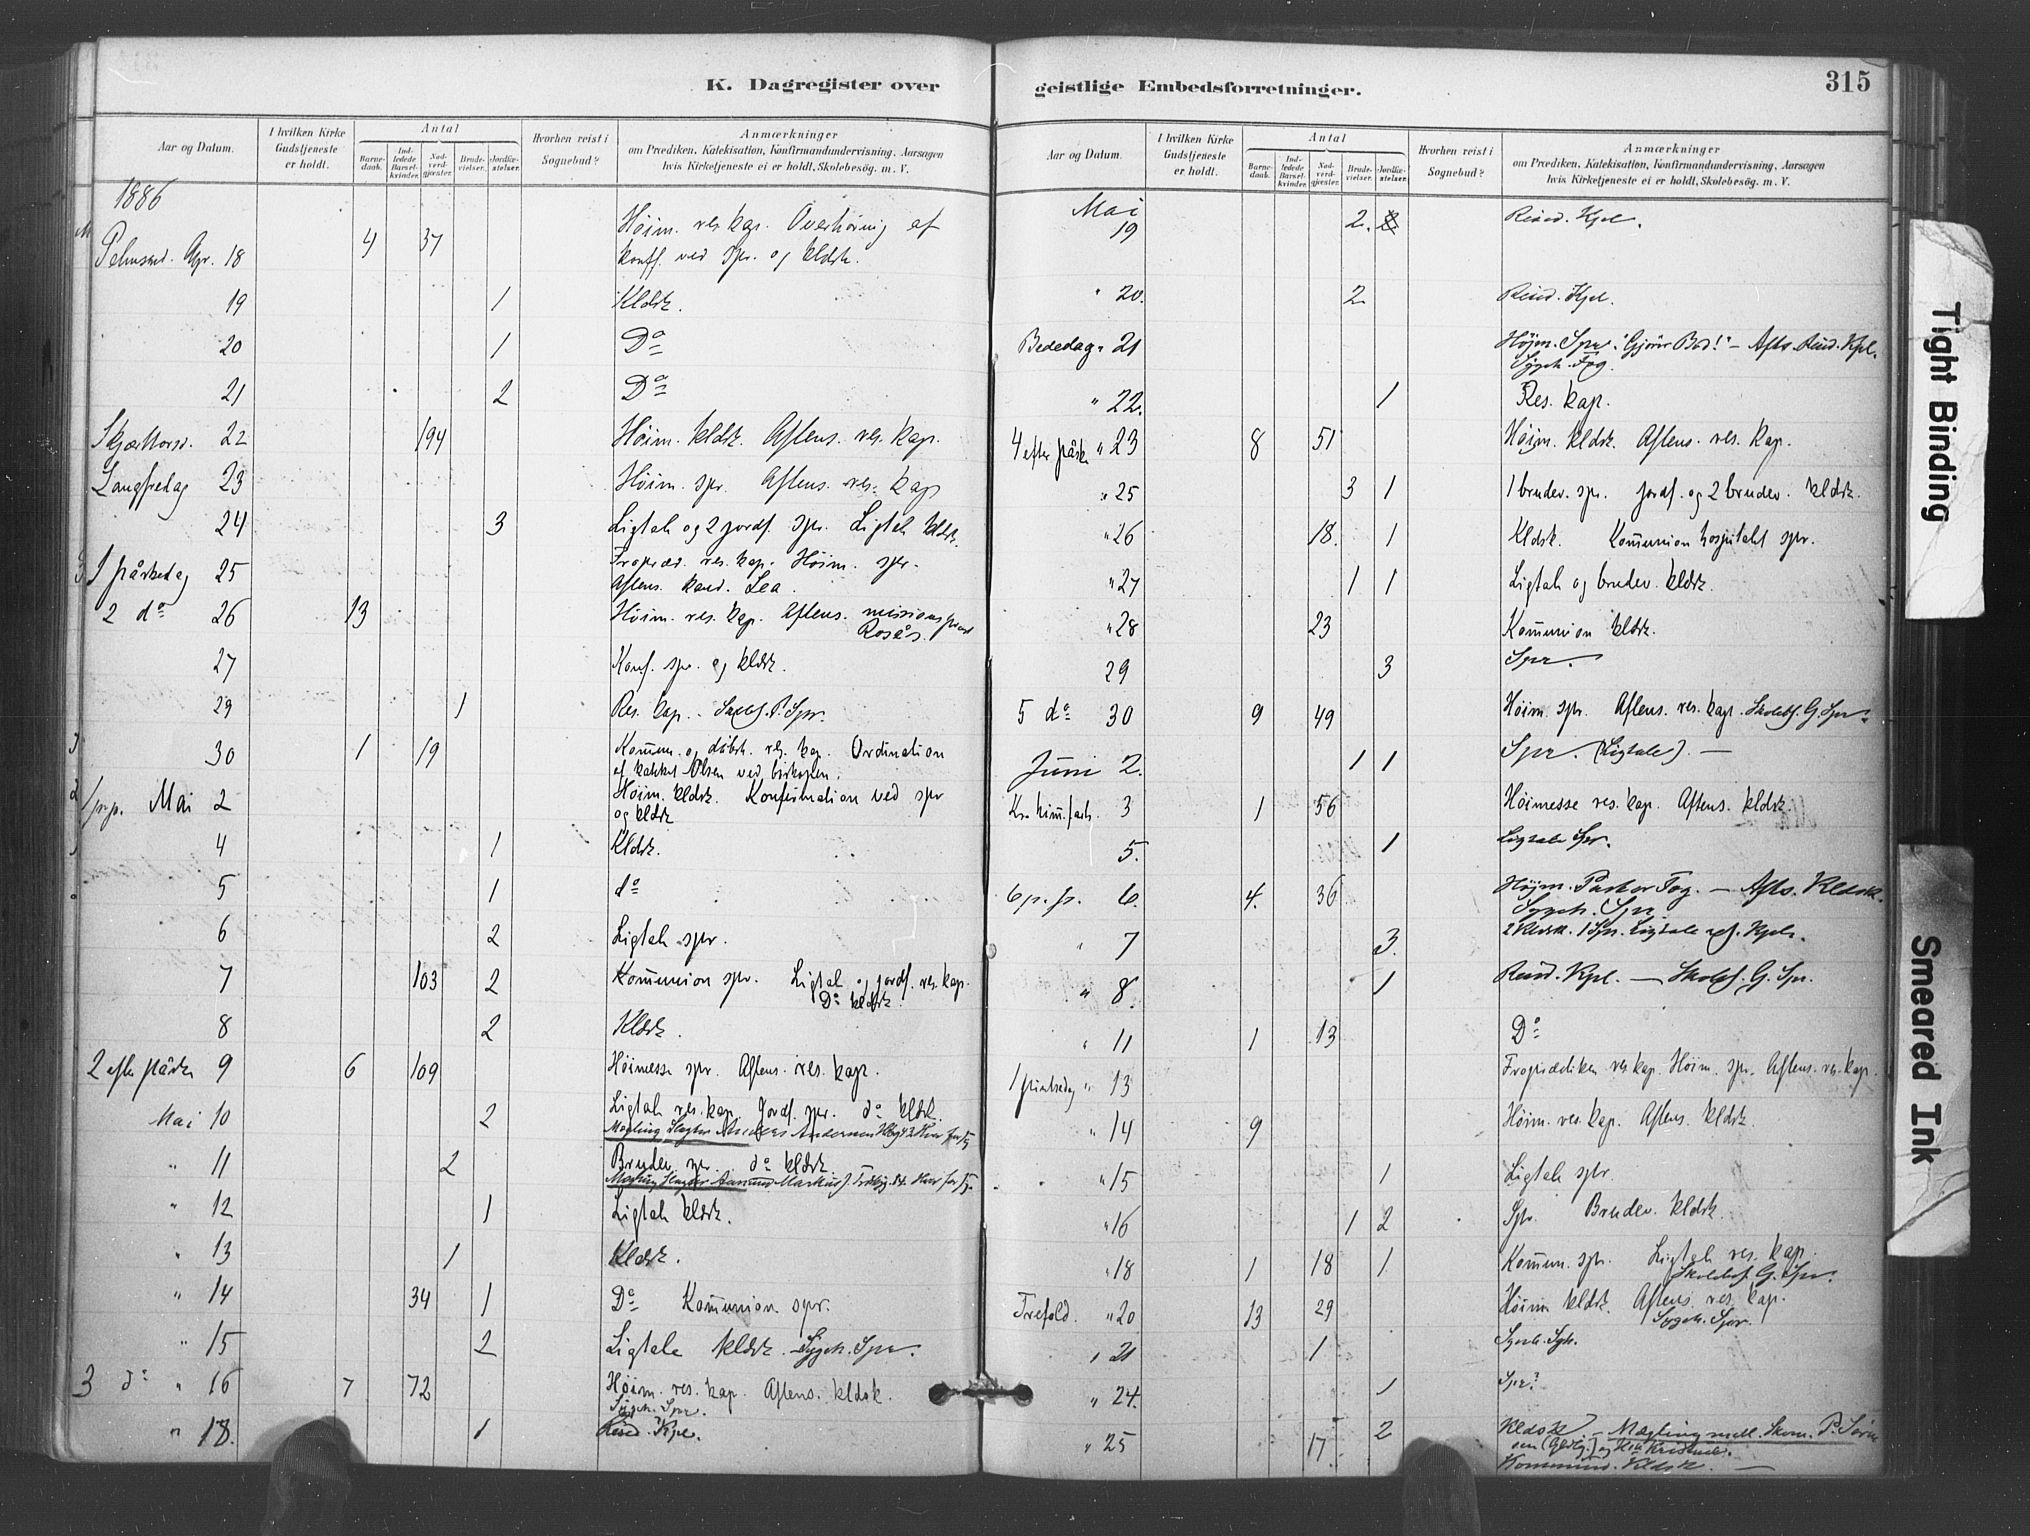 K. Dagregister over
Aar og Datum.
I hvilken Kirke Gudstjeneste er holdt.
Antal
Barnedaab.
Indledede Barselkvinder.
Nadverdgjæster.
Brudevielser.
Jordfæstelser.
Hvorhen reist i Sognebud?
Anmærkninger
om Prædiken, Katekisation, Konfirmandundervisning, Aarsagen
hvis Kirketjeneste ei er holdt, Skolebesøg. m. V.
1886
Palmesnd. Apr. 18 4 37 Høim. res. kap. Overhøring af
konf. ved spr. og kldsk.
19 1 Kldsk.
20 1 Do
21 2 Do
Skjærtorsd. 22 194 Høim. kldsk. Aftens. res. kap.
Langfredag 23 Høim. spr. Aftens. res. kap
24 3 Ligtale og 2 jordf. spr. Ligtale kldsk.
1 påskedag 25 Fropræd. res. kap. Høim. spr.
Aftens. kand. Lea.
2 do 26 13 Høim. res. kap. Aftens. missionsprest
Rosås.
27 Konf. spr. og kldsk.
29 1 Res. kap. Skolbs. P. Spr.
30 1 19 Kommun. og dåbsh. res. kap. Ordination
af Olsen ved biskopen.
1 p. p. Mai 2 Høim. kldsk. Konfirmation ved spr
og kldsk
4 1 Kldsk.
5 1 do
6 2 Ligtale spr.
7 103 2 Kommunion spr. Ligtal og jordf. res. kap.
Do kldsk.
8 2 Kldsk.
2 efter påske 9 6 109 Høimesse spr. Aftens. res. kap.
Mai 10 2 Ligtale res. kap. Jordf. spr. do kldsk.
Mægling
" 11 2 Brudev. spr. do kldsk
Mægling
" 12 1 Ligtale kldsk.
" 13 1 Kldsk.
" 14 34 1 Do Kommunion spr.
" 15 2 Ligtale kldsk. Sygeh. Spr.
3 do " 16 7 72 Høim. res. kap. Aftens. kldsk.
Sygeh. Spr.
" 18. 1 Resid. Kpl.
geistlige Embedsforretninger.
315
Aar og Datum.
I hvilken Kirke Gudstjeneste er holdt.
Antal
Barnedaab.
Indledede Barselkvinder.
Nadverdgjæster.
Brudevielser.
Jordfæstelser.
Hvorhen reist i Sognebud?
Anmærkninger
om Prædiken, Katekisation, Konfirmandundervisning, Aarsagen
hvis Kirketjeneste ei er holdt, Skolebesøg. m. V.
Mai
19 2. Resid. Kpl.
" 20. 2 Resid. Kpl.
Bededag " 21 Højm. Spr. "Gjører Bod!" – Afts. Resid. Kpl.
Sygeh. Fog.
" 22. 1 Res. kap.
4 efter påske " 23 8 51 Høim. kldsk. Aftens. res. kap.
" 25 3 1 1 brudev. spr. jordf. og 2 brudev. kldsk.
" 26 18. 1 Kldsk. Kommunion hospitalet spr.
" 27 1 1 Ligtale og brudev. kldsk.
" 28 23 Kommunion kldsk.
29 3 Spr.
5 do 30 9 49 Høim. spr. Aftens. res. kap. Skolebs. G. Spr.
Juni 2. 1 1 Spr. (Ligtale). –
Kr. himmelf. 3 1 56 Høimesse res. kap. Aftens. kldsk.
5. 1 Ligtale Spr.
6 p. p. 6. 4. 36 Højm. Pastor Fog. – Afts. Kldsk.
Sygeh. Spr.
" 7 3. 2 Kldsk. 1 Spr. Ligtale res. Kpl.
" 8. 1 Resid. Kpl. – Skolebs. G. Spr.
" 11 1 13 Do
1 pintsedag " 13 Froprædiken res kap. Høim. spr. Aftens. res. kap.
" 14 9 Høim. res. kap. Aftens kldsk.
" 15 1 Ligtale spr.
" 16 1 2 Spr. Brudev. kldsk.
" 18 1 18 1 Kommun. spr. Ligtale res. kap.
Skolebs. G. Spr.
Trefold. " 20 13 29 Høim kldsk. Aftens. res. kap.
Sygeh. Spr.
" 21 1
" 24. 1 Spr.
" 25 17 2 Kldsk. – Mægling mell. Skom. P. Søren
sen og
Kommunion. Kldsk. –
Tight Binding
Smeared Ink